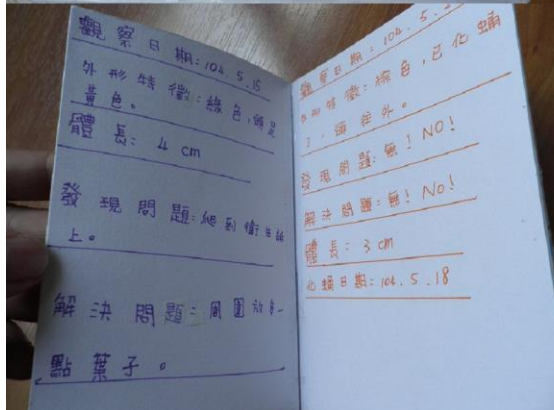 觀察日期:104.5.15
外形特徵:綠色,頭是
黃色。
體長:4cm
發現問題:爬到衛生紙
上。
解決問題:周圍放多一
點葉子。
觀察日期:104.5.
外形特徵:綠色,已化蛹
了,頭往外。
發現問題:無!NO!
解決問題:無!No!
體長:3cm
化蛹日期:104.5.18